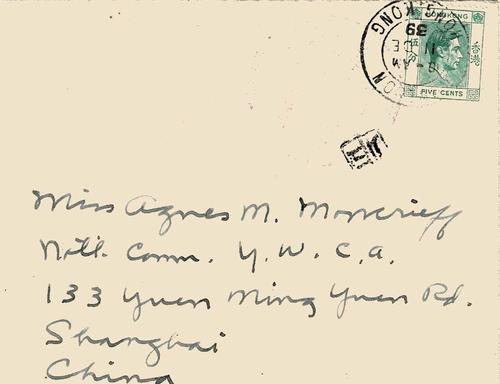 HONG KONG
KOWLOON
1 DE
39
8-AM
HONGKONG
香港
伍分
FIVE CENTS
Miss Agnes M. Moncrieff
Nat'l. Comm. Y.W.C.A.
133 Yuen Ming Yuen Rd.
Shanghai
China